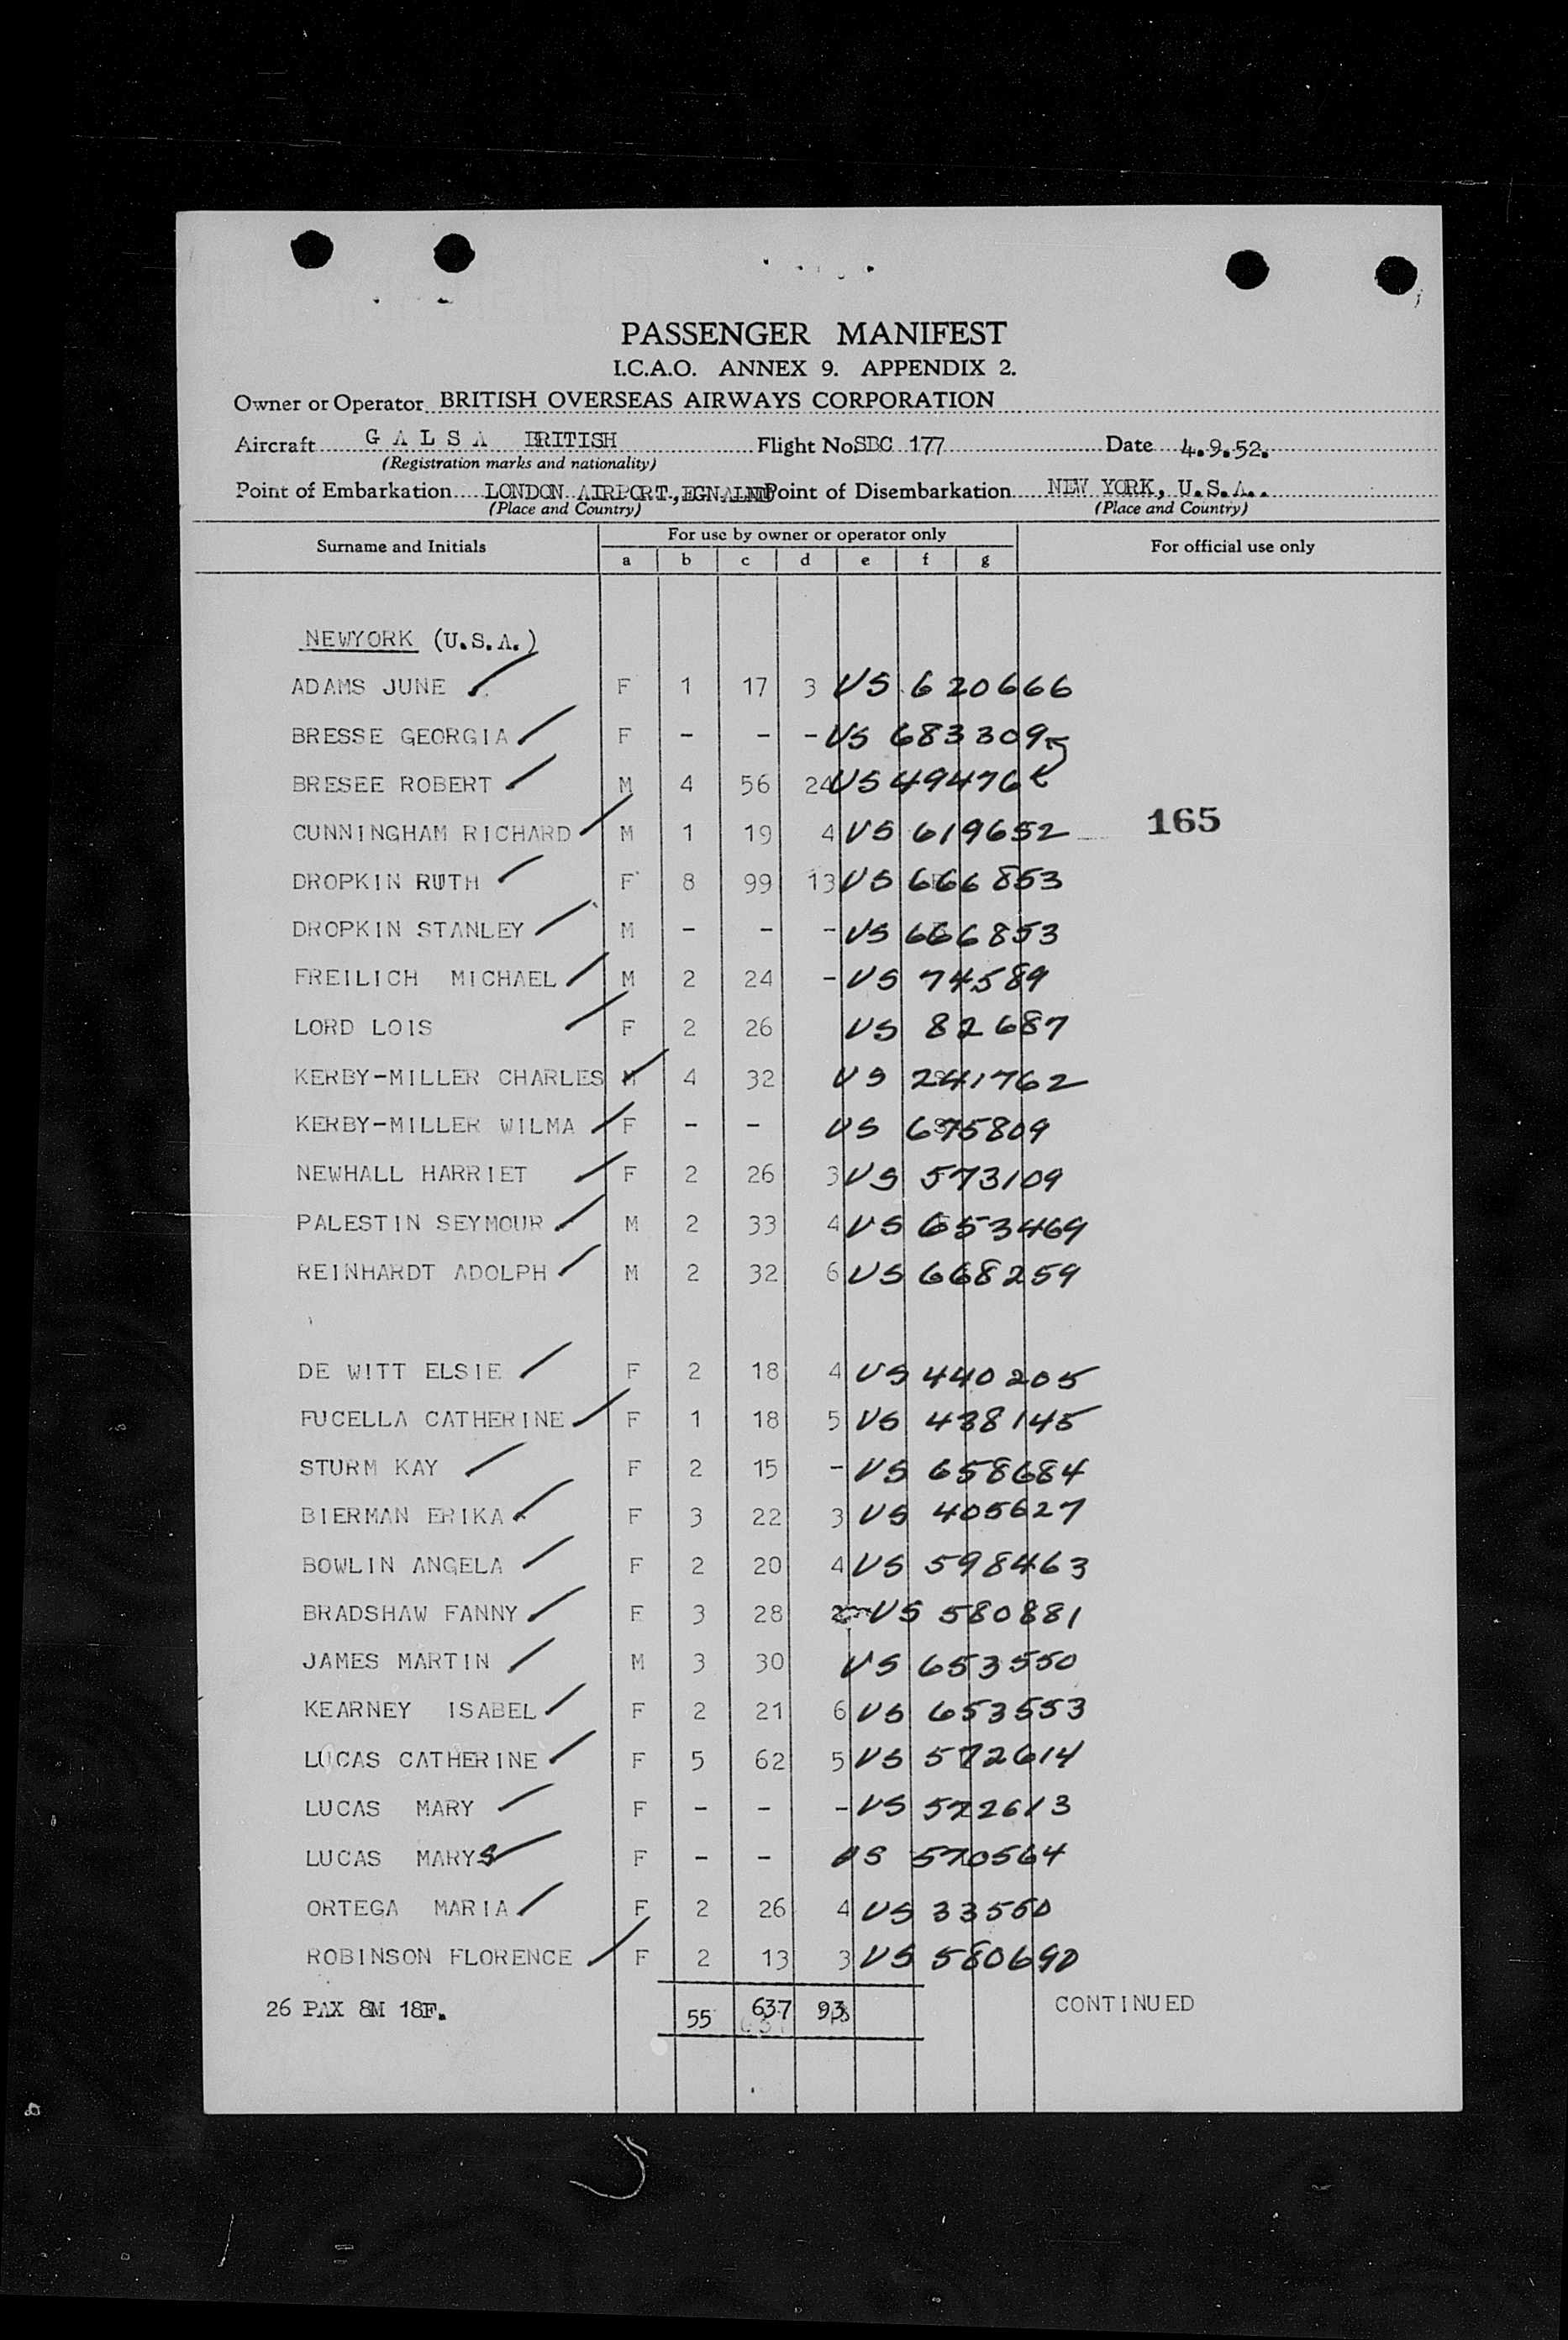 PASSENGER MANIFEST
I.C.A.O. ANNEX 9. APPENDIX 2.
Owner or Operator BRITISH OVERSEAS AIRWAYS CORPORATION
Aircraft G A L S A BRITISH Flight No. SBC 177 Date 4.9.52.
(Registration marks and nationality)
Point of Embarkation LONDON AIRPORT., Point of Disembarkation NEW YORK, U.S.A..
(Place and Country) (Place and Country)
Surname and Initials For use by owner or operator only For official use only
a b c d e f g
NEWYORK (U.S.A.)
ADAMS JUNE F 1 17 3 US 620666
BRESSE GEORGIA F - - - US 683309
BRESEE ROBERT M 4 56 24 US 49476
CUNNINGHAM RICHARD M 1 19 4 US 619652 165
DROPKIN RUTH F 8 99 13 US 666853
DROPKIN STANLEY M - - - US 666853
FREILICH MICHAEL M 2 24 - US 74589
LORD LOIS F 2 26 US 82687
KERBY-MILLER CHARLES M 4 32 US 241762
KERBY-MILLER WILMA F - - US 675809
NEWHALL HARRIET F 2 26 3 US 573109
PALESTIN SEYMOUR M 2 33 4 US 653469
REINHARDT ADOLPH M 2 32 6 US 668259
DE WITT ELSIE F 2 18 4 US 440205
FUCELLA CATHERINE F 1 18 5 US 438145
STURM KAY F 2 15 - US 658684
BIERMAN ERIKA F 3 22 3 US 405627
BOWLIN ANGELA F 2 20 4 US 598463
BRADSHAW FANNY F 3 28 2 US 580881
JAMES MARTIN M 3 30 US 653550
KEARNEY ISABEL F 2 21 6 US 653553
LUCAS CATHERINE F 5 62 5 US 572614
LUCAS MARY F - - - US 572613
LUCAS MARYS F - - US 570564
ORTEGA MARIA F 2 26 4 US 33550
ROBINSON FLORENCE F 2 13 3 US 580690
26 PAX 8M 18F. 55 637 93 CONTINUED